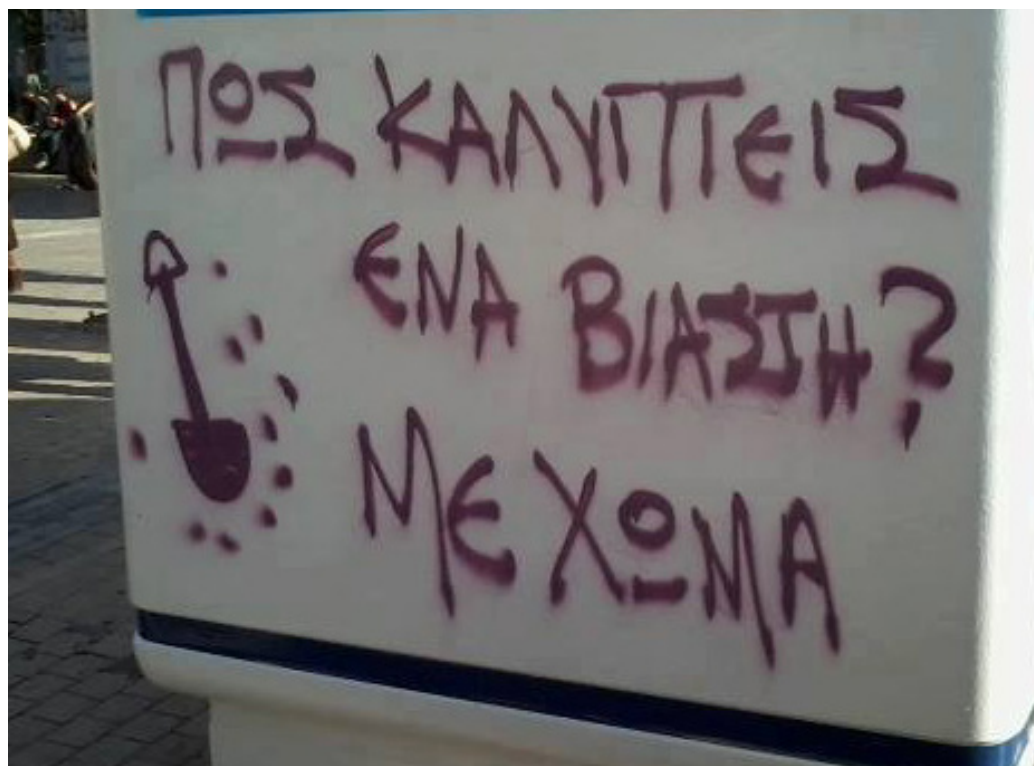 ΠΩΣ ΚΑΛΥΠΤΕΙΣ
ΕΝΑ ΒΙΑΣΤΗ?
ΜΕ ΧΩΜΑ